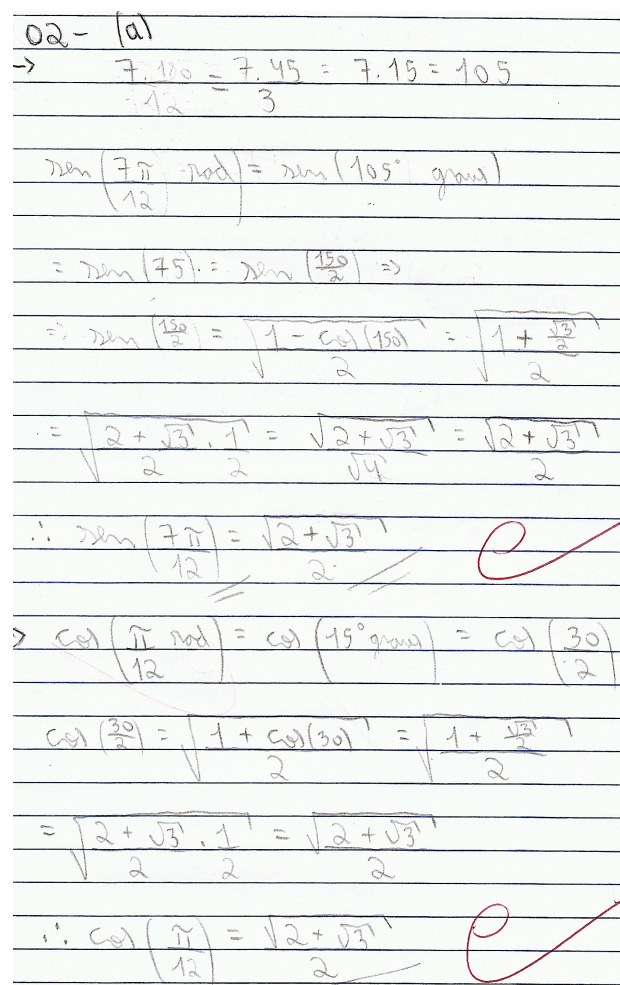 02 - (a)
→ 7.180/12 = 7.45/3 = 7.15 = 105
sen(7π/12 rad) = sen(105° graus)
= sen(75) = sen(150/2) ⇒
⇒ sen(150/2) = √((1 - cos(150))/2) = √((1 + √3/2)/2)
= √((2 + √3)/2 . 1/2) = √(2 + √3)/√4 = √(2 + √3)/2
∴ sen(7π/12) = √(2 + √3)/2
> cos(π/12 rad) = cos(15° graus) = cos(30/2)
cos(30/2) = √((1 + cos(30))/2) = √((1 + √3/2)/2)
= √((2 + √3)/2 . 1/2) = √(2 + √3)/2
∴ cos(π/12) = √(2 + √3)/2